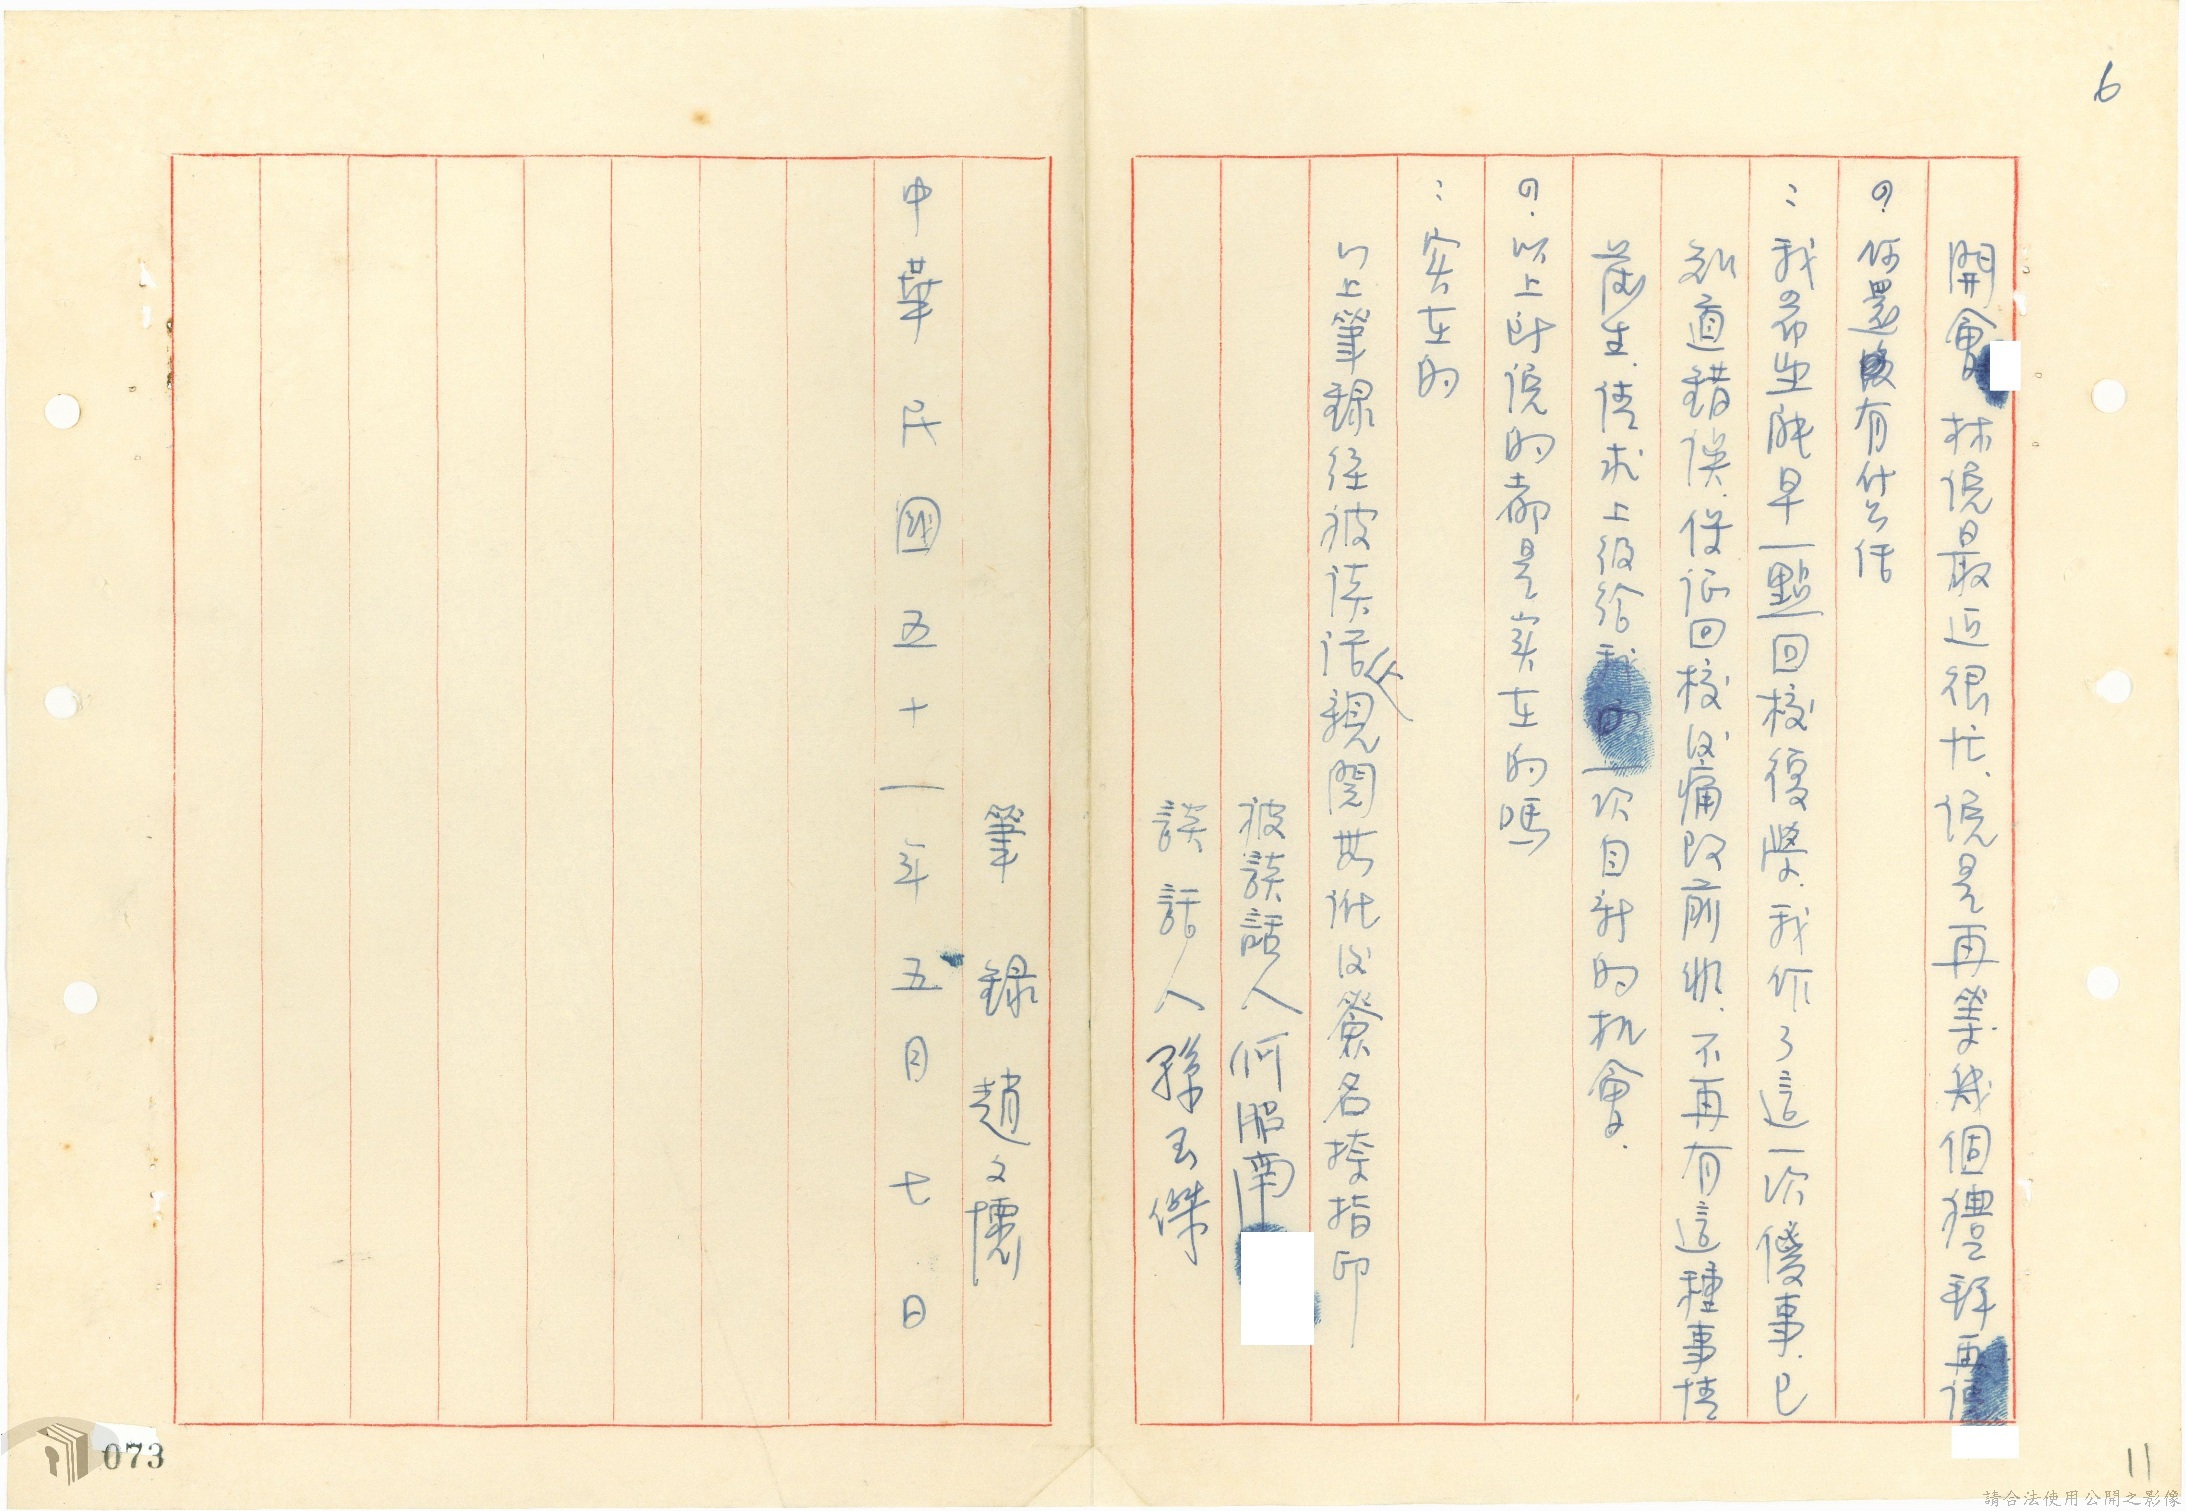 6
開會林說最近很忙、說是再幾個禮拜再
の.你還有什么話
：我希望能早一點回校復學.我作了這一次傻事.已
知道錯誤.保证回校後痛改前非.不再有這種事情
發生.请求上级给我的一次自新的机會.
の.以上所说的都是实在的嗎
：实在的
以上筆録经被谈话人親閱無訛後簽名捺指印
被談話人何服南
談話人孫玉傑
筆録趙文
中華民國五十一年五月七日
073
11
請合法使用公開之影像